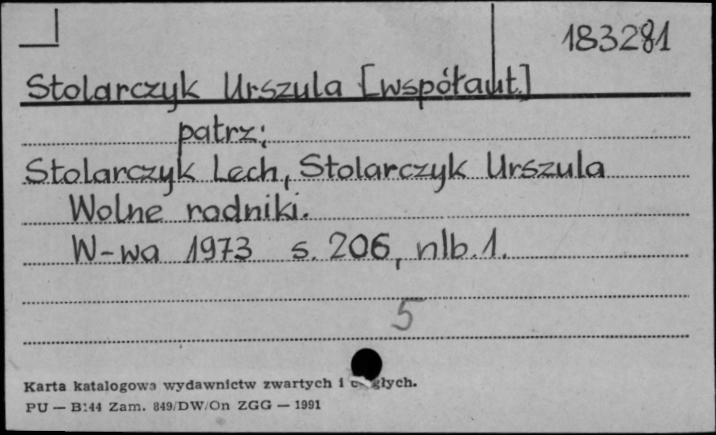 183281
Stolarczyk Urszula [współaut.]
patrz:
Stolarczyk Lech, Stolarczyk Urszula
Wolne rodniki.
W-wa 1973 s. 206, nlb. 1.
5
Karta katalogowa wydawnictw zwartych i
PU — B144 Zam. 849/DW/On ZGG — 1991